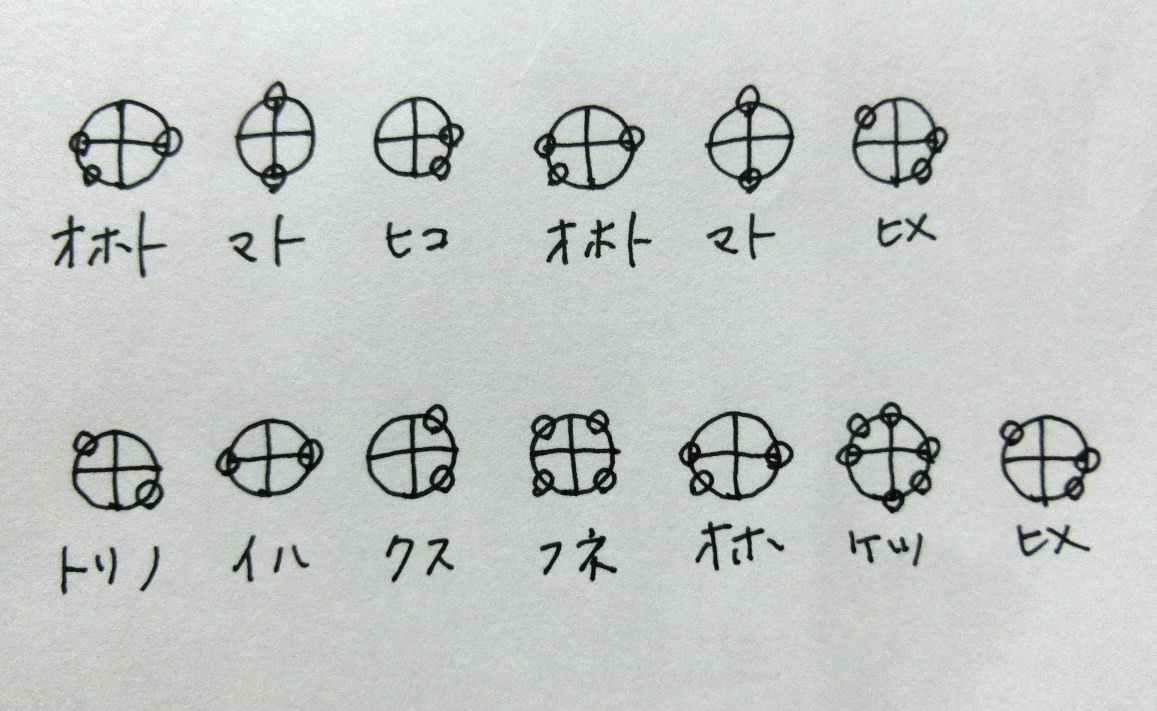 オホト マト ヒコ オホト マト ヒメ
トリノ イハ クス フネ オホ ケツ ヒメ